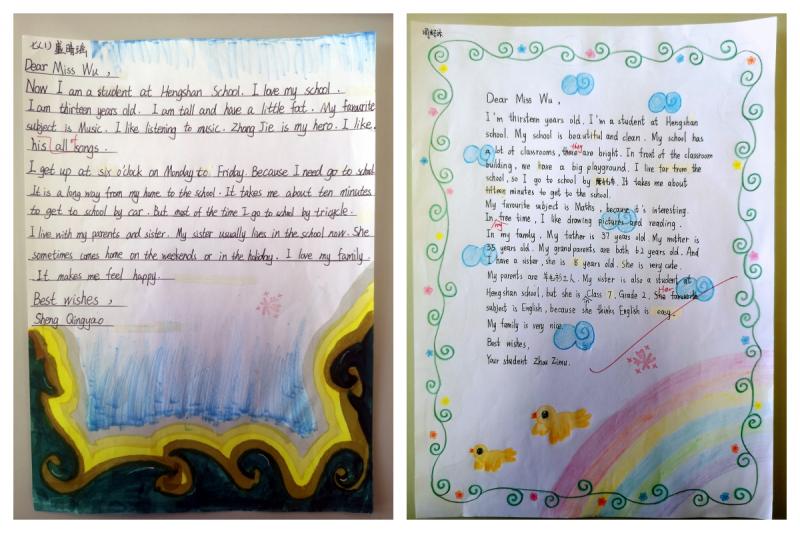 七(1) 盛晴瑶
Dear Miss Wu ,
Now I am a student at Hengshan School. I love my school .
I am thirteen years old. I am tall and have a little fat. My favourite
subject is Music. I like listening to music. Zhang Jie is my hero. I like
his all of songs.
I get up at six o'clock on Monday to Friday. Because I need go to school
It is a long way from my home to the school. It takes me about ten minutes
to get to school by car. But most of the time I go to school by tricycle.
I live with my parents and sister. My sister usually lives in the school now. She
sometimes comes home on the weekends or in the holiday. I love my family.
It makes me feel happy.
Best wishes ,
Sheng Qingyao
Dear Miss Wu ,
I'm thirsteen years old. I'm a student at Hengshan
school. My school is beautiful and clean. My school has
a lot of classrooms, they are bright. In front of the classroom
building, we have a big playground. I live far from the
school, so I go to school by It takes me about
fifteen minutes to get to the school.
My favourite subject is Maths, because it's interesting.
In my free time, I like drawing pictures and reading.
In my family, My father is 37 years old My mother is
35 years old. My grandparents are both 62 years old. And
I have a sister, she is 8 years old. She is very cute.
My parents are 工人. My sister is also a student at
Hengshan school, but she is Class 7, Grade 2. Her favourite
subject is English, because she thinks English is easy.
My family is very nice.
Best wishes,
Your student Zhou Zimu.